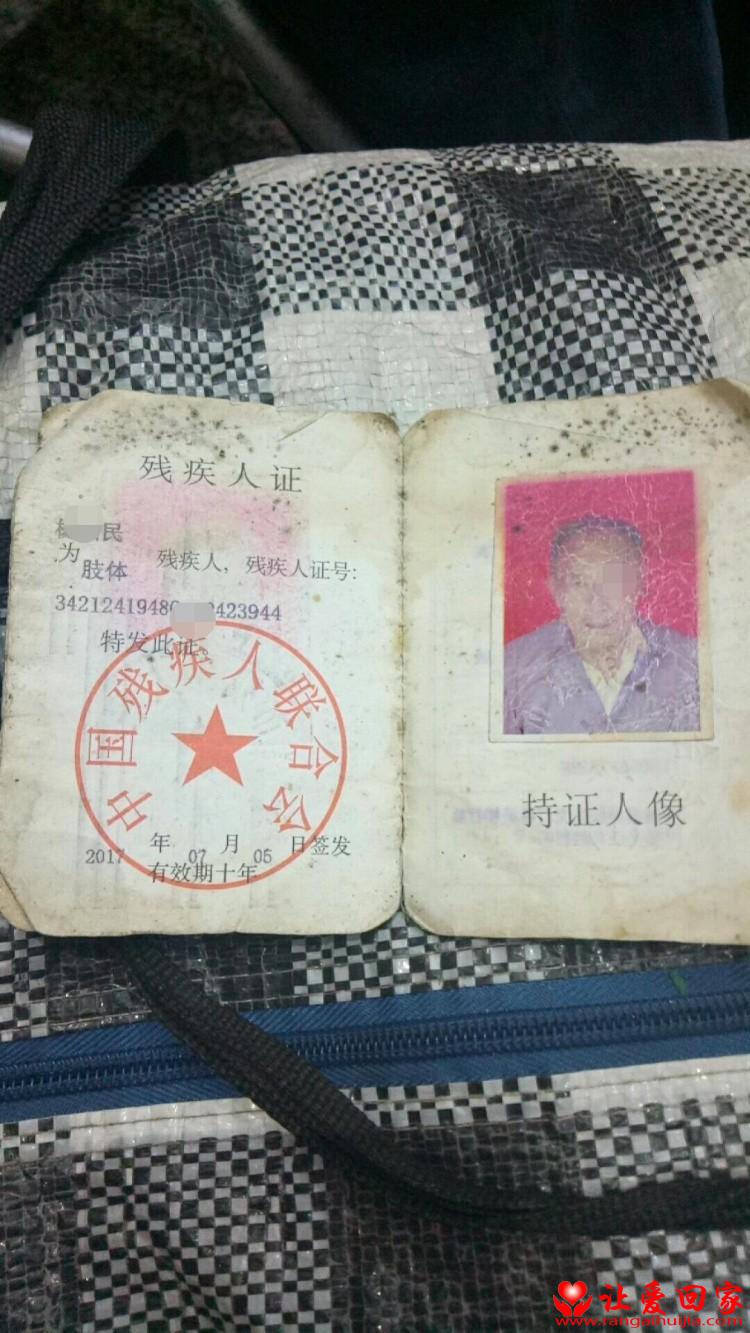 残疾人证
民
为 肢体 残疾人，残疾人证号:
34212419480 423944
特发此证。
中国残疾人联合会
2017 年 07 月 05 日签发
有效期十年
持证人像
让爱回家
www.rangaihuijia.com